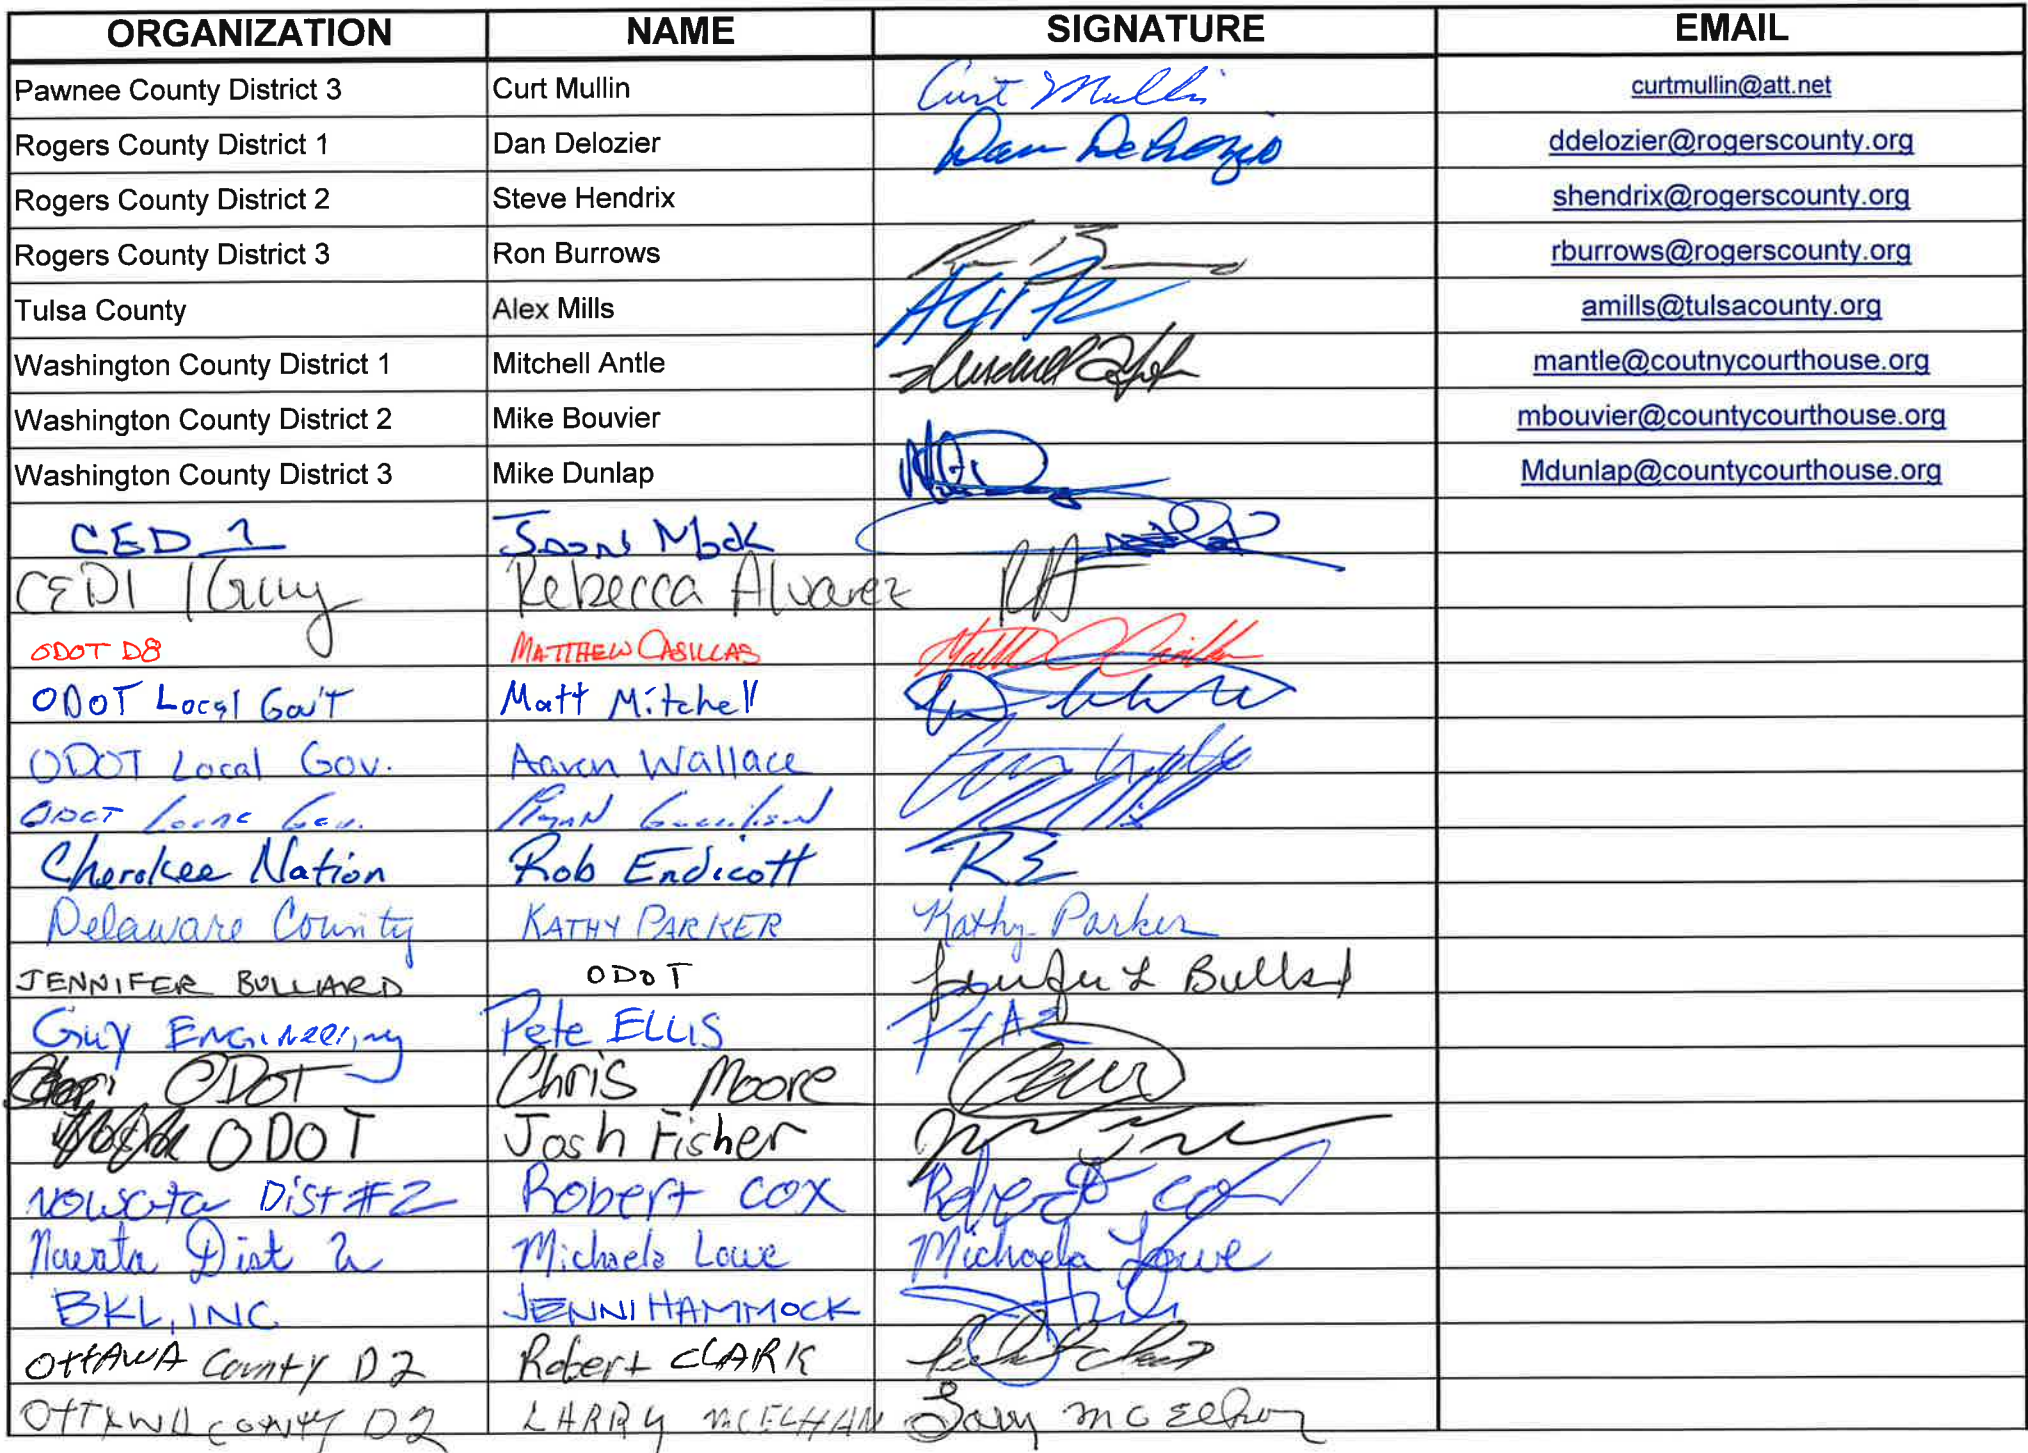 ORGANIZATION NAME SIGNATURE EMAIL
Pawnee County District 3 Curt Mullin Curt Mullin curtmullin@att.net
Rogers County District 1 Dan Delozier Dan Delozier ddelozier@rogerscounty.org
Rogers County District 2 Steve Hendrix shendrix@rogerscounty.org
Rogers County District 3 Ron Burrows rburrows@rogerscounty.org
Tulsa County Alex Mills amills@tulsacounty.org
Washington County District 1 Mitchell Antle mantle@coutnycourthouse.org
Washington County District 2 Mike Bouvier mbouvier@countycourthouse.org
Washington County District 3 Mike Dunlap Mdunlap@countycourthouse.org
CED 1 Mock
CED1 / Guy Rebecca Alvarez RA
ODOT D8 MATTHEW CASILLAS
ODOT Local Gov't Matt Mitchell
ODOT Local Gov. Aaron Wallace
ODOT Local Gov.
Cherokee Nation Rob Endicott RE
Delaware County KATHY PARKER Kathy Parker
JENNIFER BULLARD ODOT Jennifer L Bullard
Guy Engineering Pete ELLIS
ODOT Chris Moore
ODOT Josh Fisher
Nowata Dist #2 Robert Cox Robert Cox
Nowata Dist 2 Michaela Lowe Michaela Lowe
BKL, INC JENNI HAMMOCK
OttAWA County D2 Robert CLARK
OTTAWA COUNTY D2 LARRY